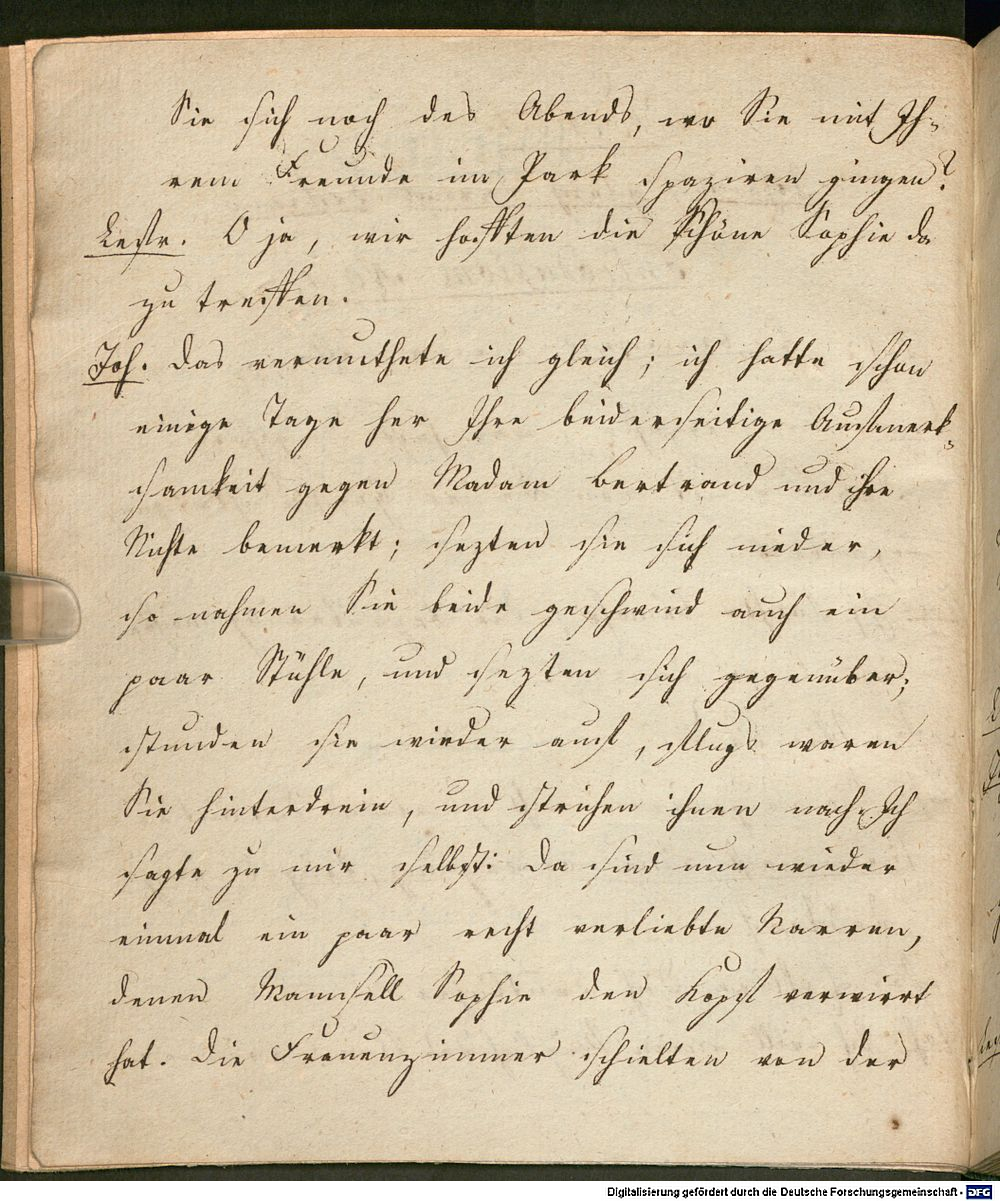 Sie sich noch des Abends, wo Sie mit Ih-
rem Freunde im Park spaziren gingen?
Lestr. O ja, wir hofften die schöne Sophie da
zu treffen.
Joh. Das vermuthete ich gleich; ich hatte schon
einige Tage her Ihre beiderseitige Aufmerk-
samkeit gegen Madam Bertrand und ihre
Nichte bemerkt; sezten sie sich nieder,
so nahmen Sie beide geschwind auch ein
paar Stühle, und sezten sich gegenüber;
stunden sie wieder auf, flugs waren
Sie hinterdrein, und strichen ihnen nach. Ich
sagte zu mir selbst: da sind nun wieder
einmal ein paar recht verliebte Narren,
denen Mamsell Sophie den Kopf verwirrt
hat. Die Frauenzimmer schielten von der
Digitalisierung gefördert durch die Deutsche Forschungsgemeinschaft - DFG